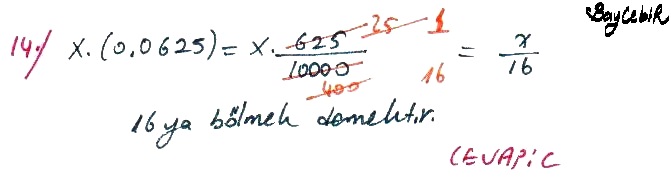 BayCebir
14./ x.(0.0625) = x. 625/10000 25/400 1/16 = x/16
16 ya bölmek demektir.
CEVAP: C